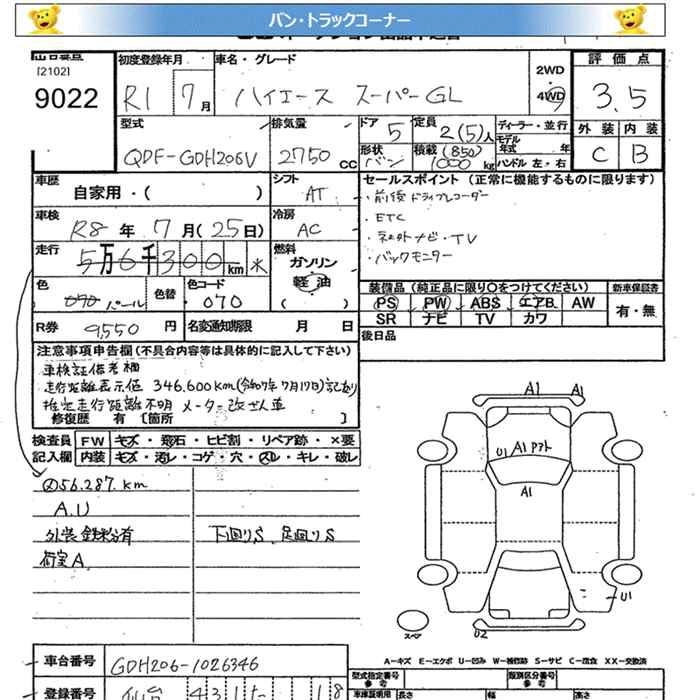 バン・トラックコーナー
[2102]
9022
初度登録年月
R1 7月
車名・グレード
ハイエース スーパーGL
2WD
4WD
評価点
3.5
外装 内装
C B
型式
QDF-GDH206V
排気量
2750 CC
ドア
5
定員
2(5)人
形状
バン
積載 (850)
1000 kg
ディーラー・並行
モデル年式 年
ハンドル 左・右
車歴
自家用・( )
シフト
AT
セールスポイント（正常に機能するものに限ります）
・前後ドライブレコーダー
・ETC
・社外ナビ・TV
・バックモニター
車検
R8年 7月(25日)
冷房
AC
走行
5万6千300km ※
燃料
ガソリン
軽油
色
070 パール
色替
色コード
070
装備品（純正品に限り○をつけてください）
PS PW ABS エアB. AW
SR ナビ TV カワ
新車保証書
有・無
R券 9,550 円
名変通知期限 月 日
後日品
注意事項申告欄（不具合内容等は具体的に記入して下さい）
車検証備考欄
走行距離表示値 346,600km(令和7年7月17日)記載あり
推定走行距離不明 メーター改ざん車
修復歴 有 [箇所 ]
検査員記入欄
FW キズ・飛石・ヒビ割・リペア跡・×要
内装 キズ・汚レ・コゲ・穴・スレ・キレ・破レ
メ56.287.km
A.U
外装鉄粉有
荷室A
下回りS、足回りS
A1 A1
U1 A1
A1
U1
U2
スペア
A－キズ E－エクボ U－凹み W－補修跡 S－サビ C－腐食 XX－交換済
車台番号
GDH206-1026346
登録番号
仙台 431
型式指定番号 参考
類別区分番号 参考
車庫証明用 長さ 幅 高さ